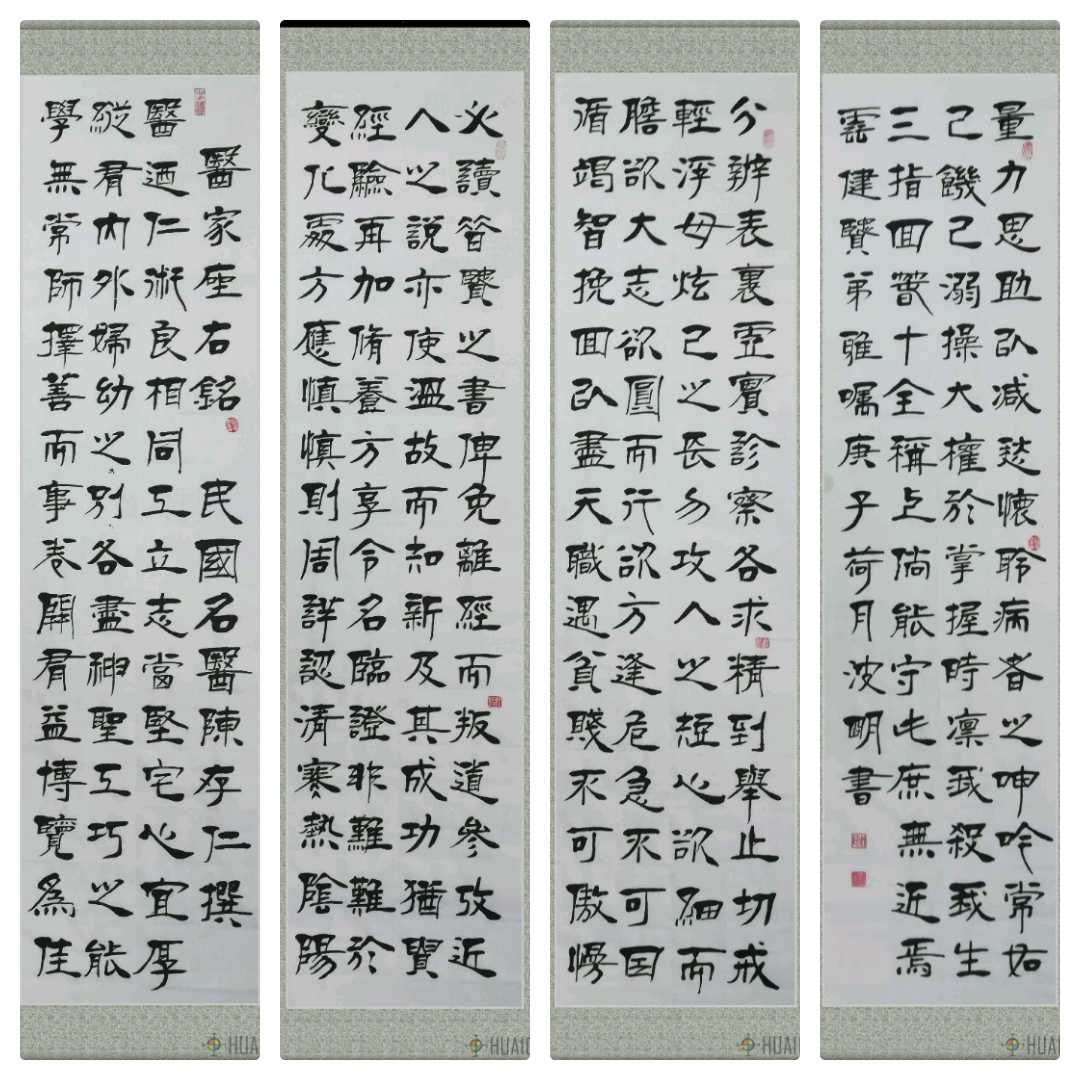 醫家座右銘 民國名醫陳存仁撰
醫迺仁術良相同工立志當堅宅心宜厚
縱有內外婦幼之別各盡神聖工巧之能
學無常師擇善而事卷開有益博覽為佳
必讀昔賢之書俾免離經而叛道參攷近
人之說亦使溫故而知新及其成功猶賢
經驗再加脩養方享令名臨證非難難於
變化處方應慎慎則周詳認清寒熱陰陽
分辨表裏虛實診察各求精到舉止切戒
輕浮毋炫己之長勿攻人之短心欲細而
膽欲大志欲圓而行欲方逢危急不可因
循竭智挽回以盡天職遇貧賤不可傲慢
量力思助以減愁懷聆病者之呻吟常如
己饑己溺操大權於掌握時凜我殺我生
三指回春十全稱上倘能守此庶無近焉
健賢弟雅囑庚子荷月波明書